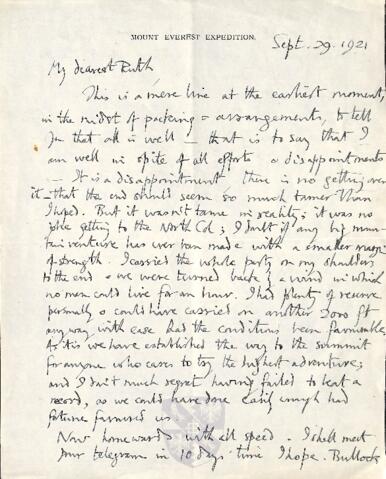 MOUNT EVEREST EXPEDITION.
Sept. 29. 1921
My dearest Ruth
This is a mere line at the earliest moment,
in the midst of packing & arrangements, to tell
you that all is well – that is to say that I
am well in spite of all efforts & disappointments
– It is a disappointment, there is no getting over
it – that the end should seem so much tamer than
I hoped. But it wasn't tame in reality; it was no
joke getting to the North Col; I doubt if any big moun-
tain venture has ever been made with a smaller margin
of strength. I carried the whole party on my shoulders
to the end & we were turned back by a wind in which
no man could live for an hour. I had plenty of reserve
personally & could have carried on another 2000 ft
anyway with ease had the conditions been favourable.
As it is we have established the way to the summit
for anyone who cares to try the highest adventure;
and I don't much regret having failed to beat a
record, as we could have done easily enough had
fortune favoured us
Now homewards with all speed. I shall meet
your telegram in 10 days' time I hope. Bullock